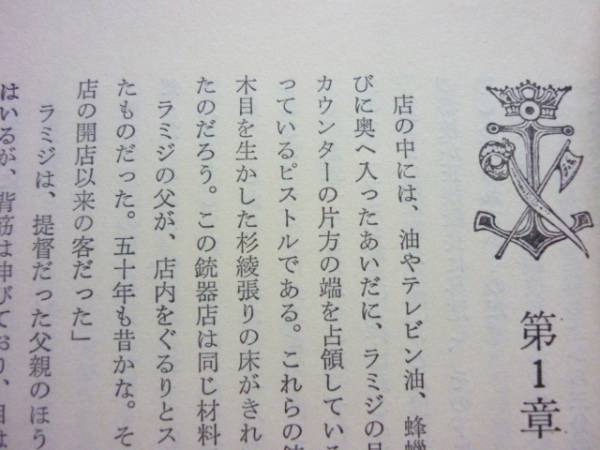 第1章
店の中には、油やテレビン油、蜂蠟
びに奥へ入ったあいだに、ラミジの目
カウンターの片方の端を占領している
っているピストルである。これらの銃
木目を生かした杉綾張りの床がきれ
たのだろう。この銃器店は同じ材料
ラミジの父が、店内をぐるりとス
たものだった。五十年も昔かな。そ
店の開店以来の客だった」
ラミジは、提督だった父親のほう
はいるが、背筋は伸びており、目は